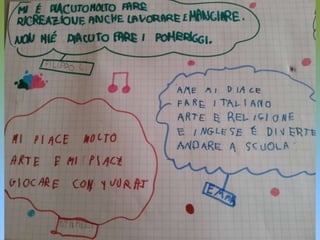 MI È PIACIUTO MOLTO FARE
RICREAZIONE ANCHE LAVORARE E MANGIARE.
NON MI È PIACUTO FARE I POMERIGGI.
FILIPPO
A ME MI PIACE
FARE ITALIANO
ARTE E RELIGIONE
E INGLESE È DIVERTE
ANDARE A SCUOLA.
EMMA
MI PIACE MOLTO
ARTE E MI PIACE
GIOCARE CON